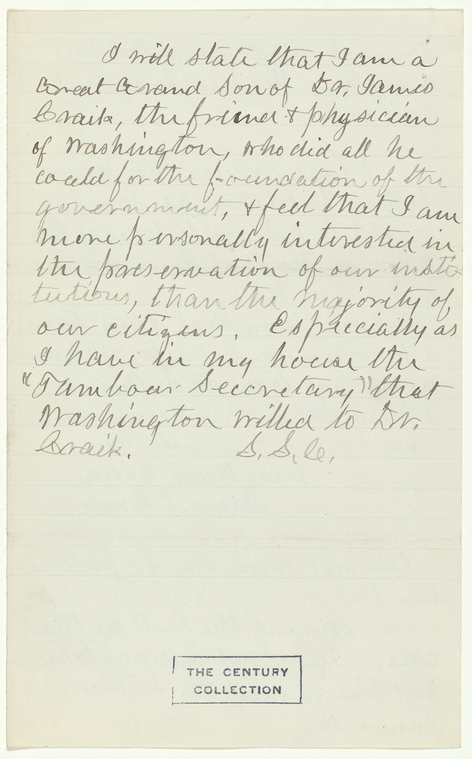 I will state that I am a
Great Grand Son of Dr. James
Craik, the friend & physician
of Washington, who did all he
could for the foundation of the
government, & feel that I am
more personally interested in
the preservation of our insti-
tutions, than the majority of
our citizens. Especially as
I have in my house the
"Tambour Secretary" that
Washington willed to Dr.
Craik. S. S. C.
THE CENTURY
COLLECTION